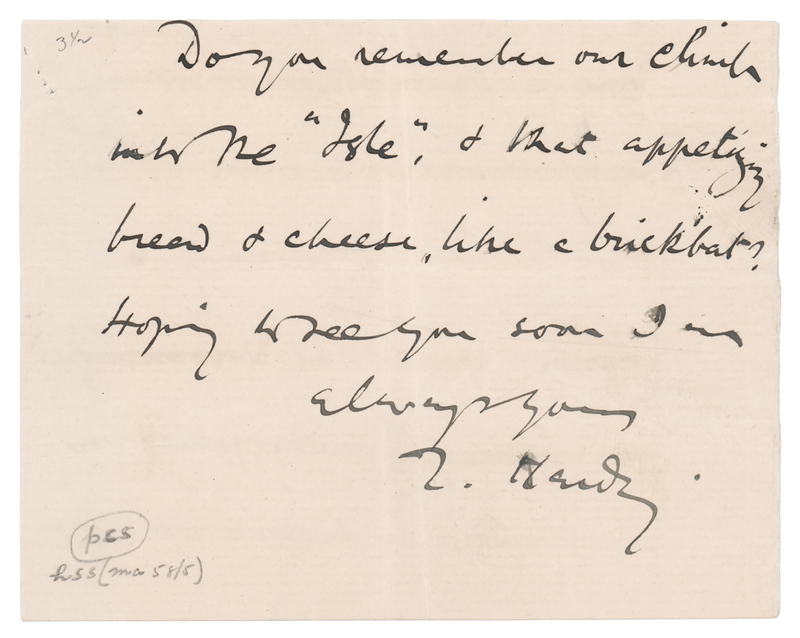 Do you remember our climb
into the "Isle", & that appetizing
bread & cheese, like a brickbat?
Hoping to see you soon I am
always yours
T. Hardy.
pss